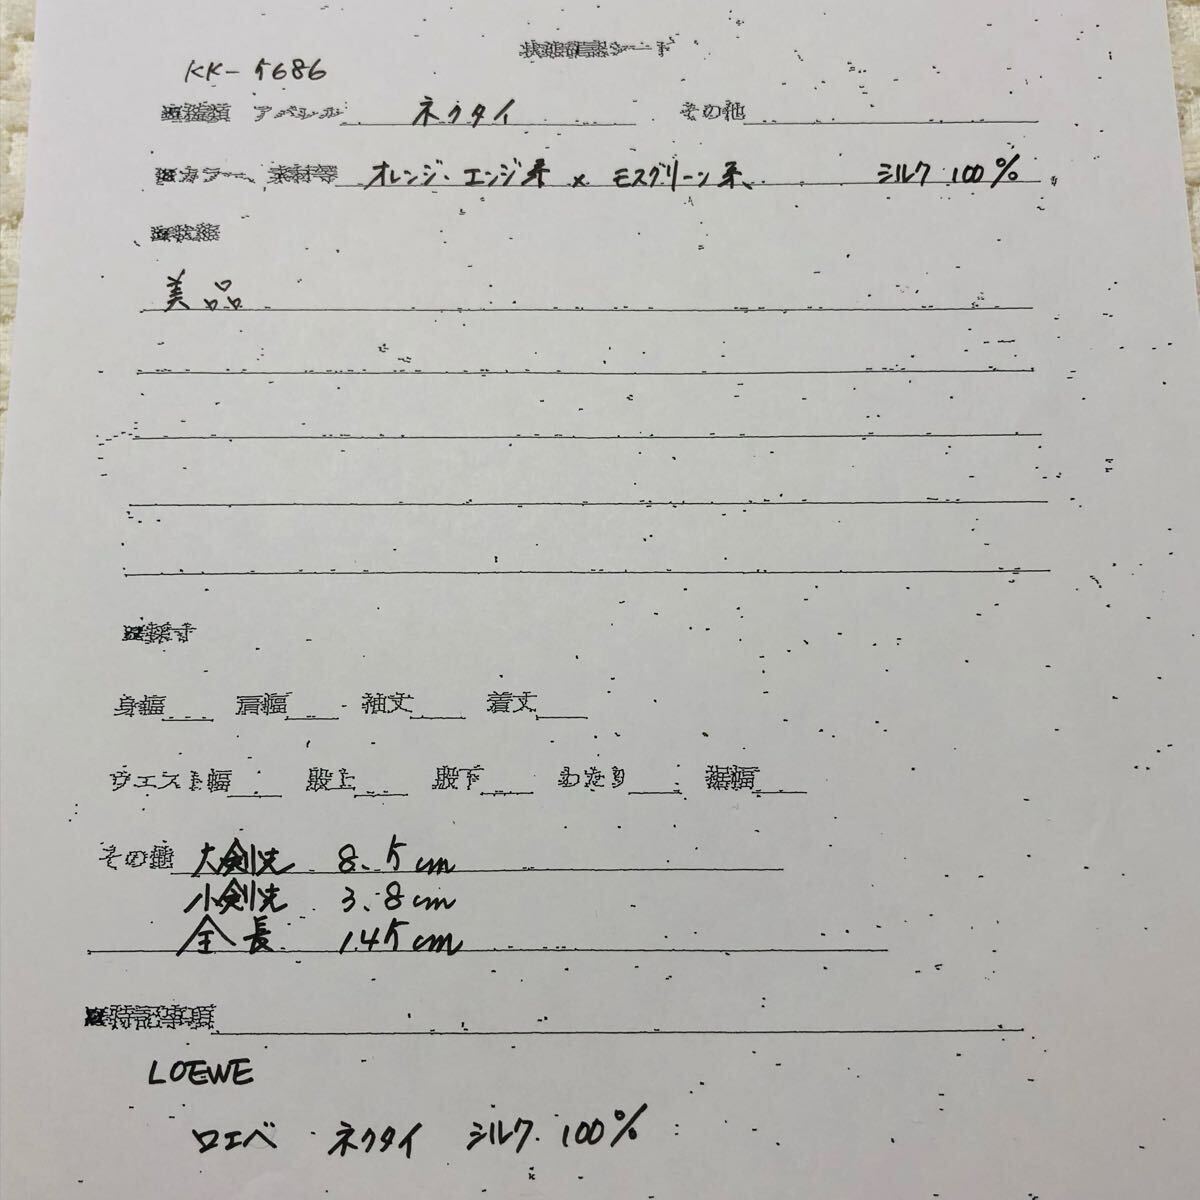 状態確認シート
KK-5686
※種類 アパレル ネクタイ その他
※カラー、素材等 オレンジ・エンジ系 × モスグリーン系、 シルク 100%
※状態
美品
※採寸
身幅 肩幅 袖丈 着丈
ウエスト幅 股上 股下 わたり 裾幅
その他 大剣先 8.5cm
小剣先 3.8cm
全長 145cm
※特記事項
LOEWE
ロエベ ネクタイ シルク 100%